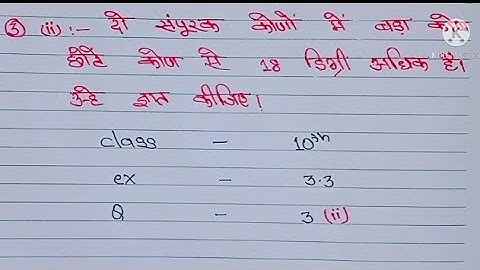 ③ (ii) :- दो संपूरक कोणों में बड़ा कोण
छोटे कोण से 18 डिग्री अधिक है।
उन्हे ज्ञात कीजिए।
class - 10th
ex - 3.3
Q - 3 (ii)